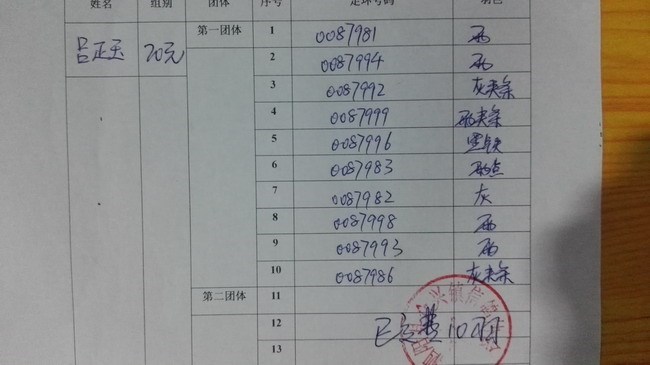 姓名 组别 团体 序号 足环号码 羽色
吕正玉 20元 第一团体 1 0087981 雨
2 0087994 雨
3 0087992 灰夹条
4 0087999 雨夹条
5 0087996
6 0087983 雨点
7 0087982 灰
8 0087998 雨
9 0087993 雨
10 0087986 灰夹条
第二团体 11
12 已交费10羽
13